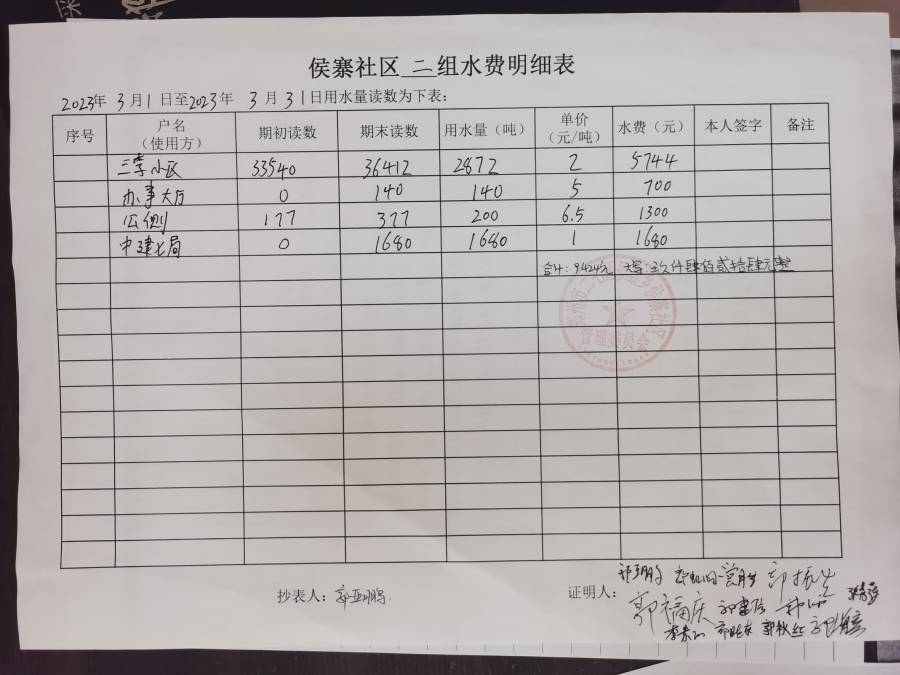 侯寨社区 二 组水费明细表
2023年 3月1日至2023年 3月31日用水量读数为下表：
序号 户名（使用方） 期初读数 期末读数 用水量（吨） 单价（元/吨） 水费（元） 本人签字 备注
三季小区 33540 36412 2872 2 5744
办事大厅 0 140 140 5 700
公厕 177 377 200 6.5 1300
中建七局 0 1680 1680 1 1680
合计：9424元 大写：玖仟肆佰贰拾肆元整
管理委员会
抄表人：
证明人：
郭振生
郭福庆
郭秋红